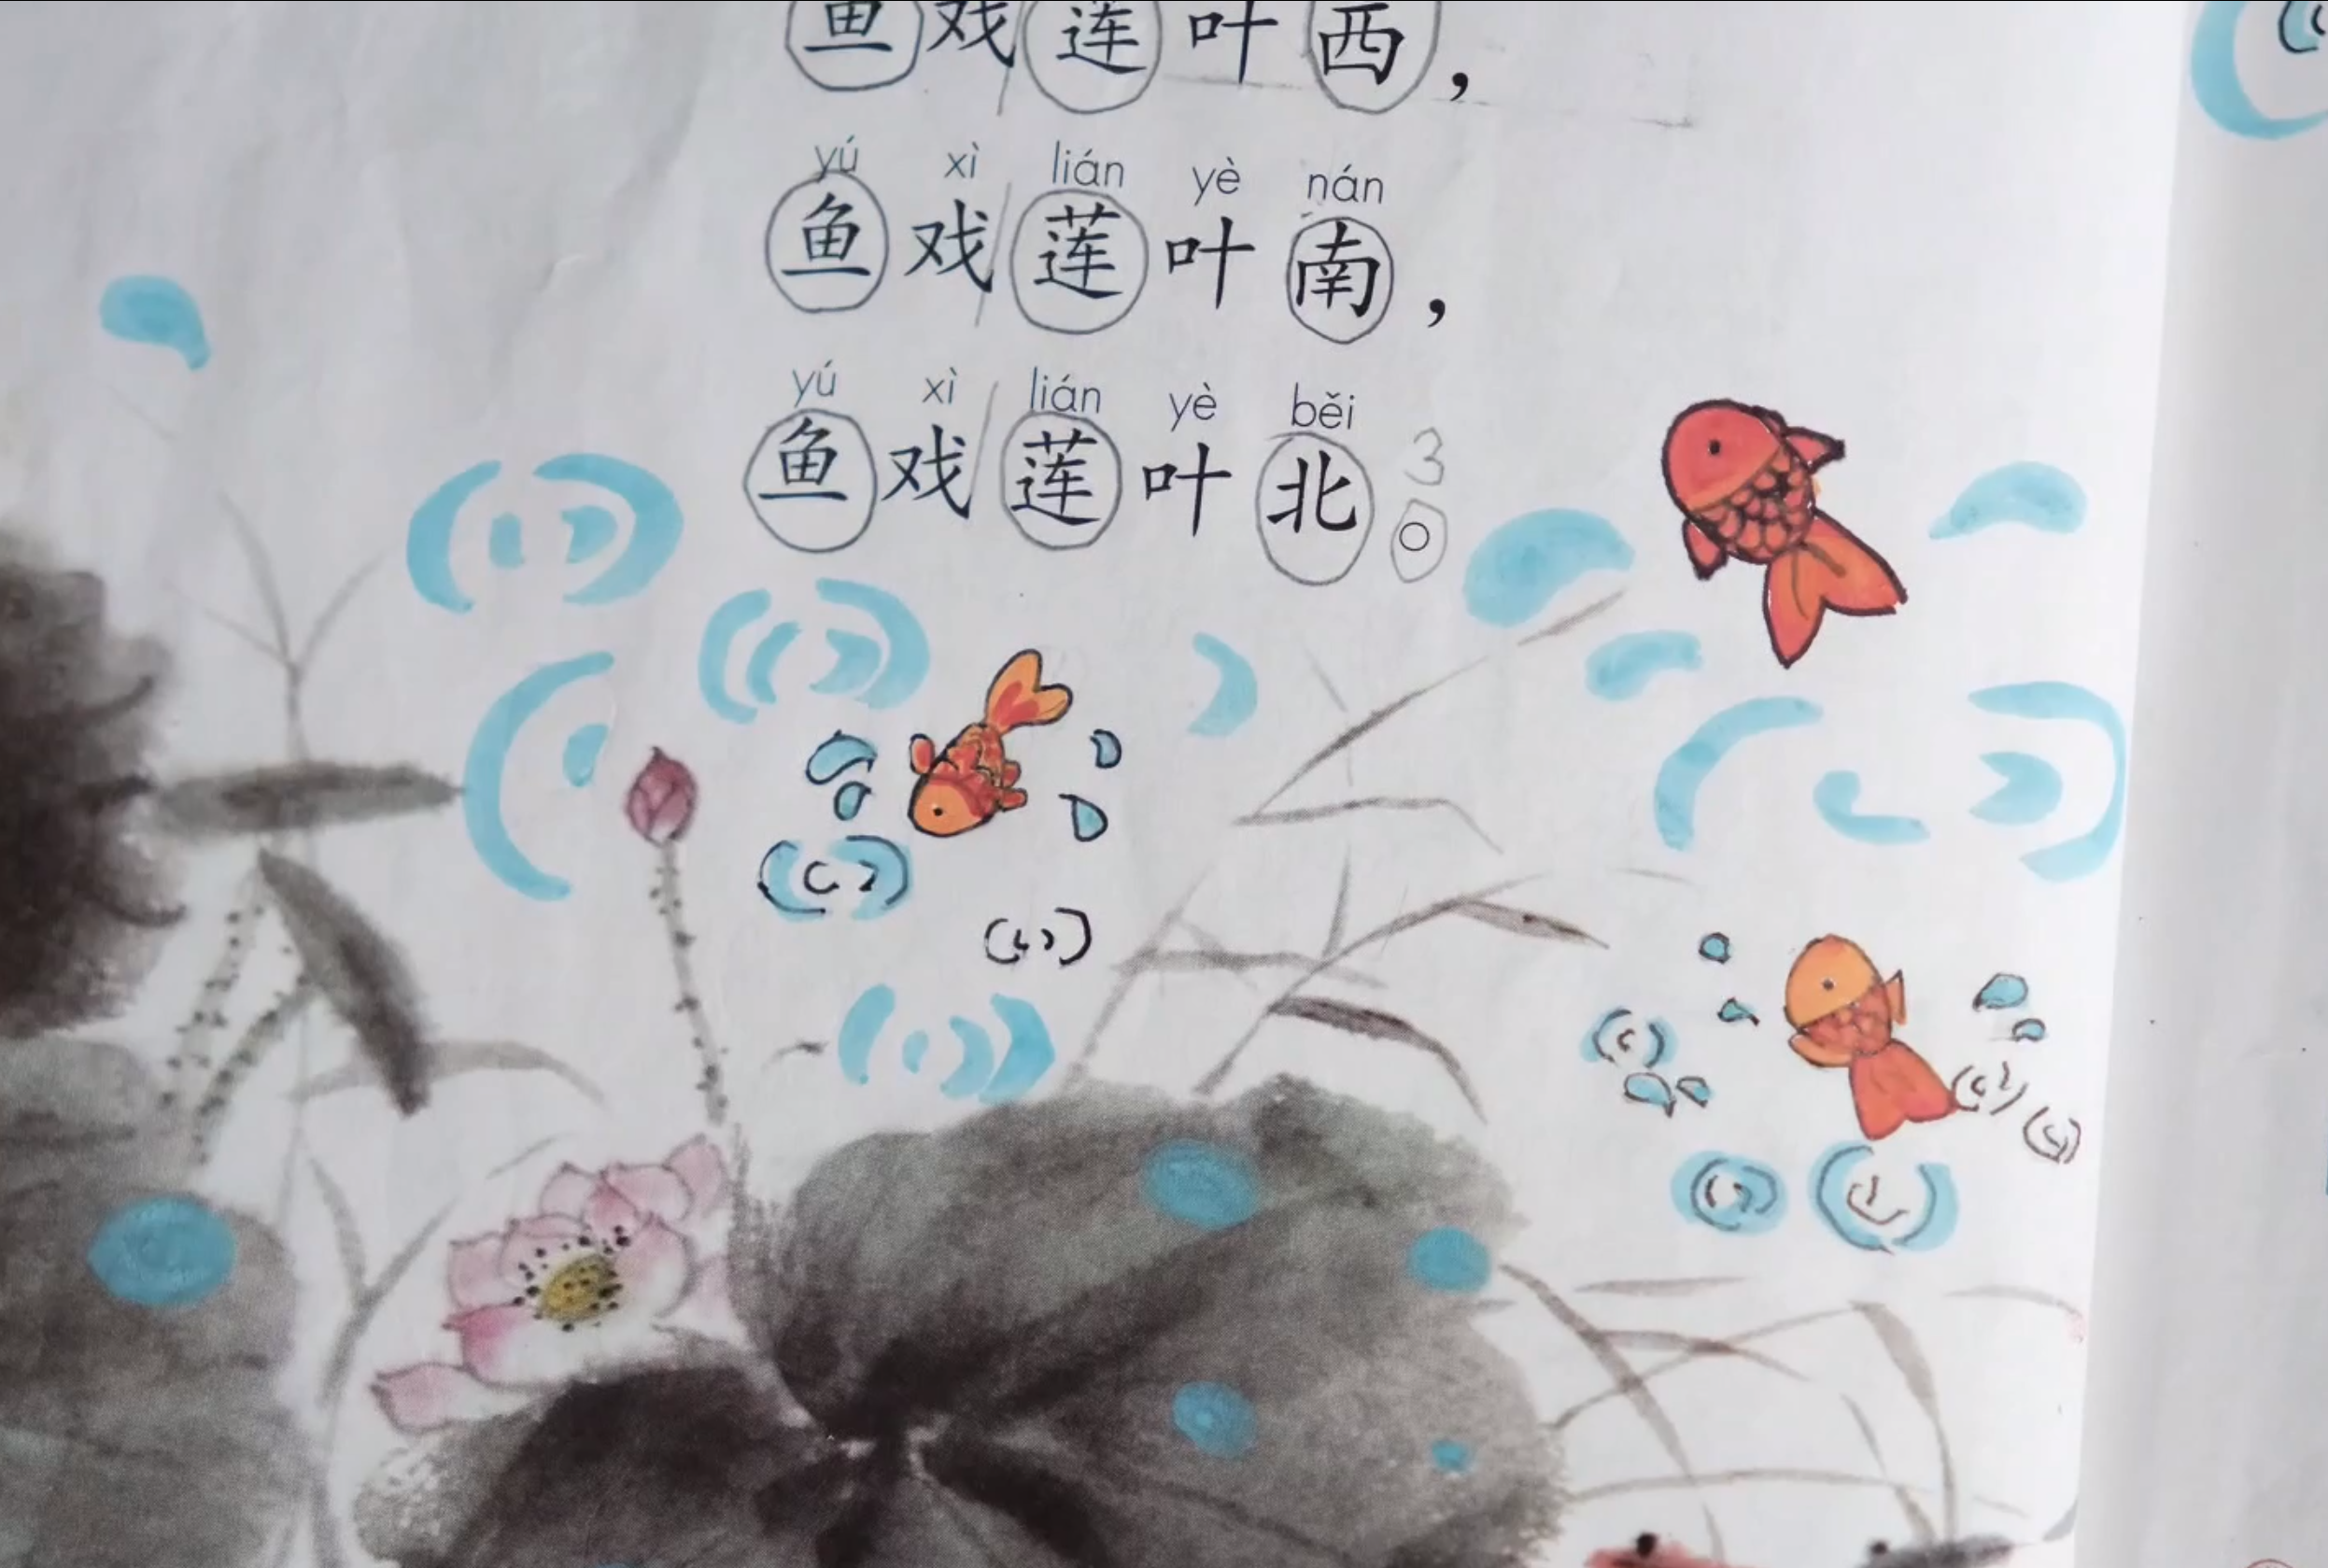 鱼戏莲叶西，
yú xì lián yè nán
鱼戏莲叶南，
yú xì lián yè běi
鱼戏莲叶北。3